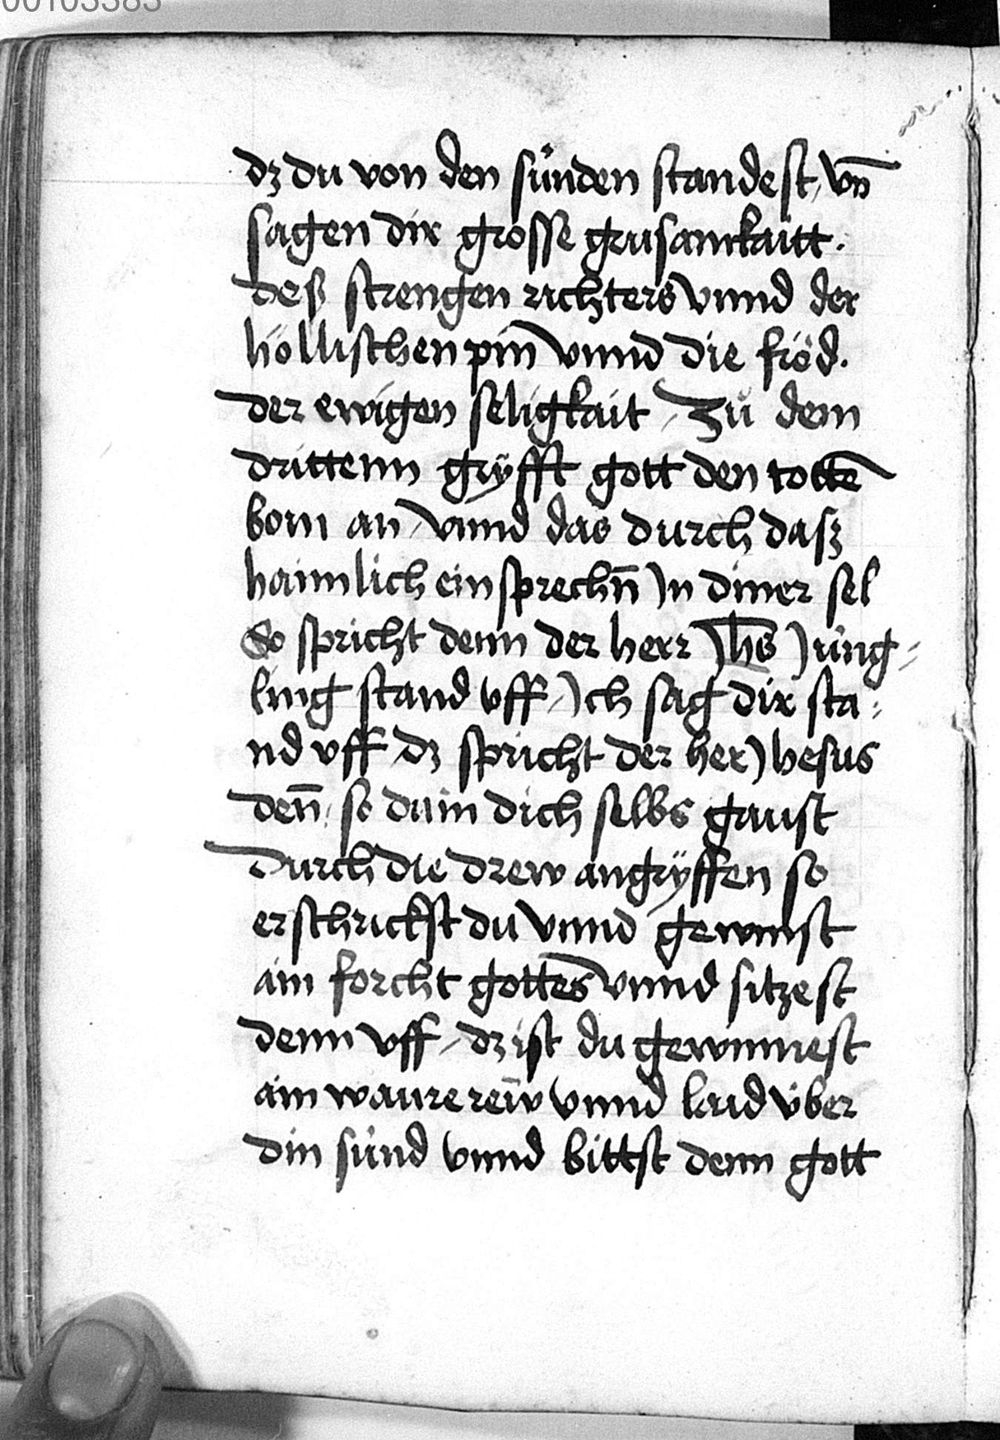 00103383
dz du von den sünden standest / vn̄
sagen dir grosse grusamkaitt.
deß strengen richters vnnd der
höllischen pin vnnd die fröd.
der ewigen seligkait / Zů dem
drittenn gryfft gott den totten̄
bom an / vnnd das durch dasz
haimlich ein sprechn̄ Jn diner sel
So spricht denn der herr Jhs Jüng=
ling stand vff / Jch sag dir sta=
nd vff / dz spricht der her Jhesus
den̄ / so du in dich selbs gaust
durch die drew angryffen so
erschrickst du vnnd gewinst
ain forcht gottes vnnd sitzest
denn vff / dz ist du gewinnest
ain waure reẅ vnnd laid über
din sünd vnnd bittst denn gott